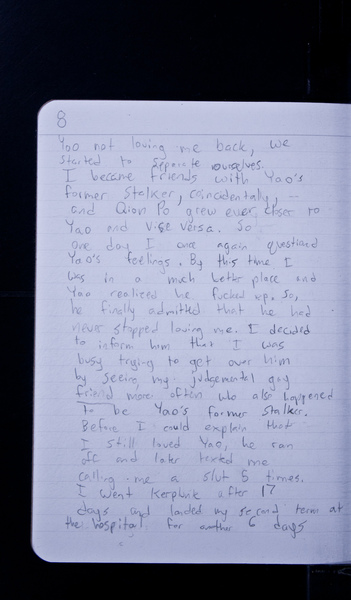 8
Yao not loving me back, we
started to separate ourselves.
I became friends with Yao's
former stalker, coincidentally, –
and Qion Po grew ever closer to
Yao and vise versa. So
one day I once again questioned
Yao's feelings. By this time I
was in a much better place and
Yao realized he fucked up. So,
he finally admitted that he had
never stopped loving me. I decided
to inform him that I was
busy trying to get over him
by seeing my judgemental guy
friend more often who also happened
to be Yao's former stalker.
Before I could explain that
I still loved Yao, he ran
off and later texted me
calling me a slut 5 times.
I went kerplunk after 17
days and landed my second term at
the hospital for another 6 days